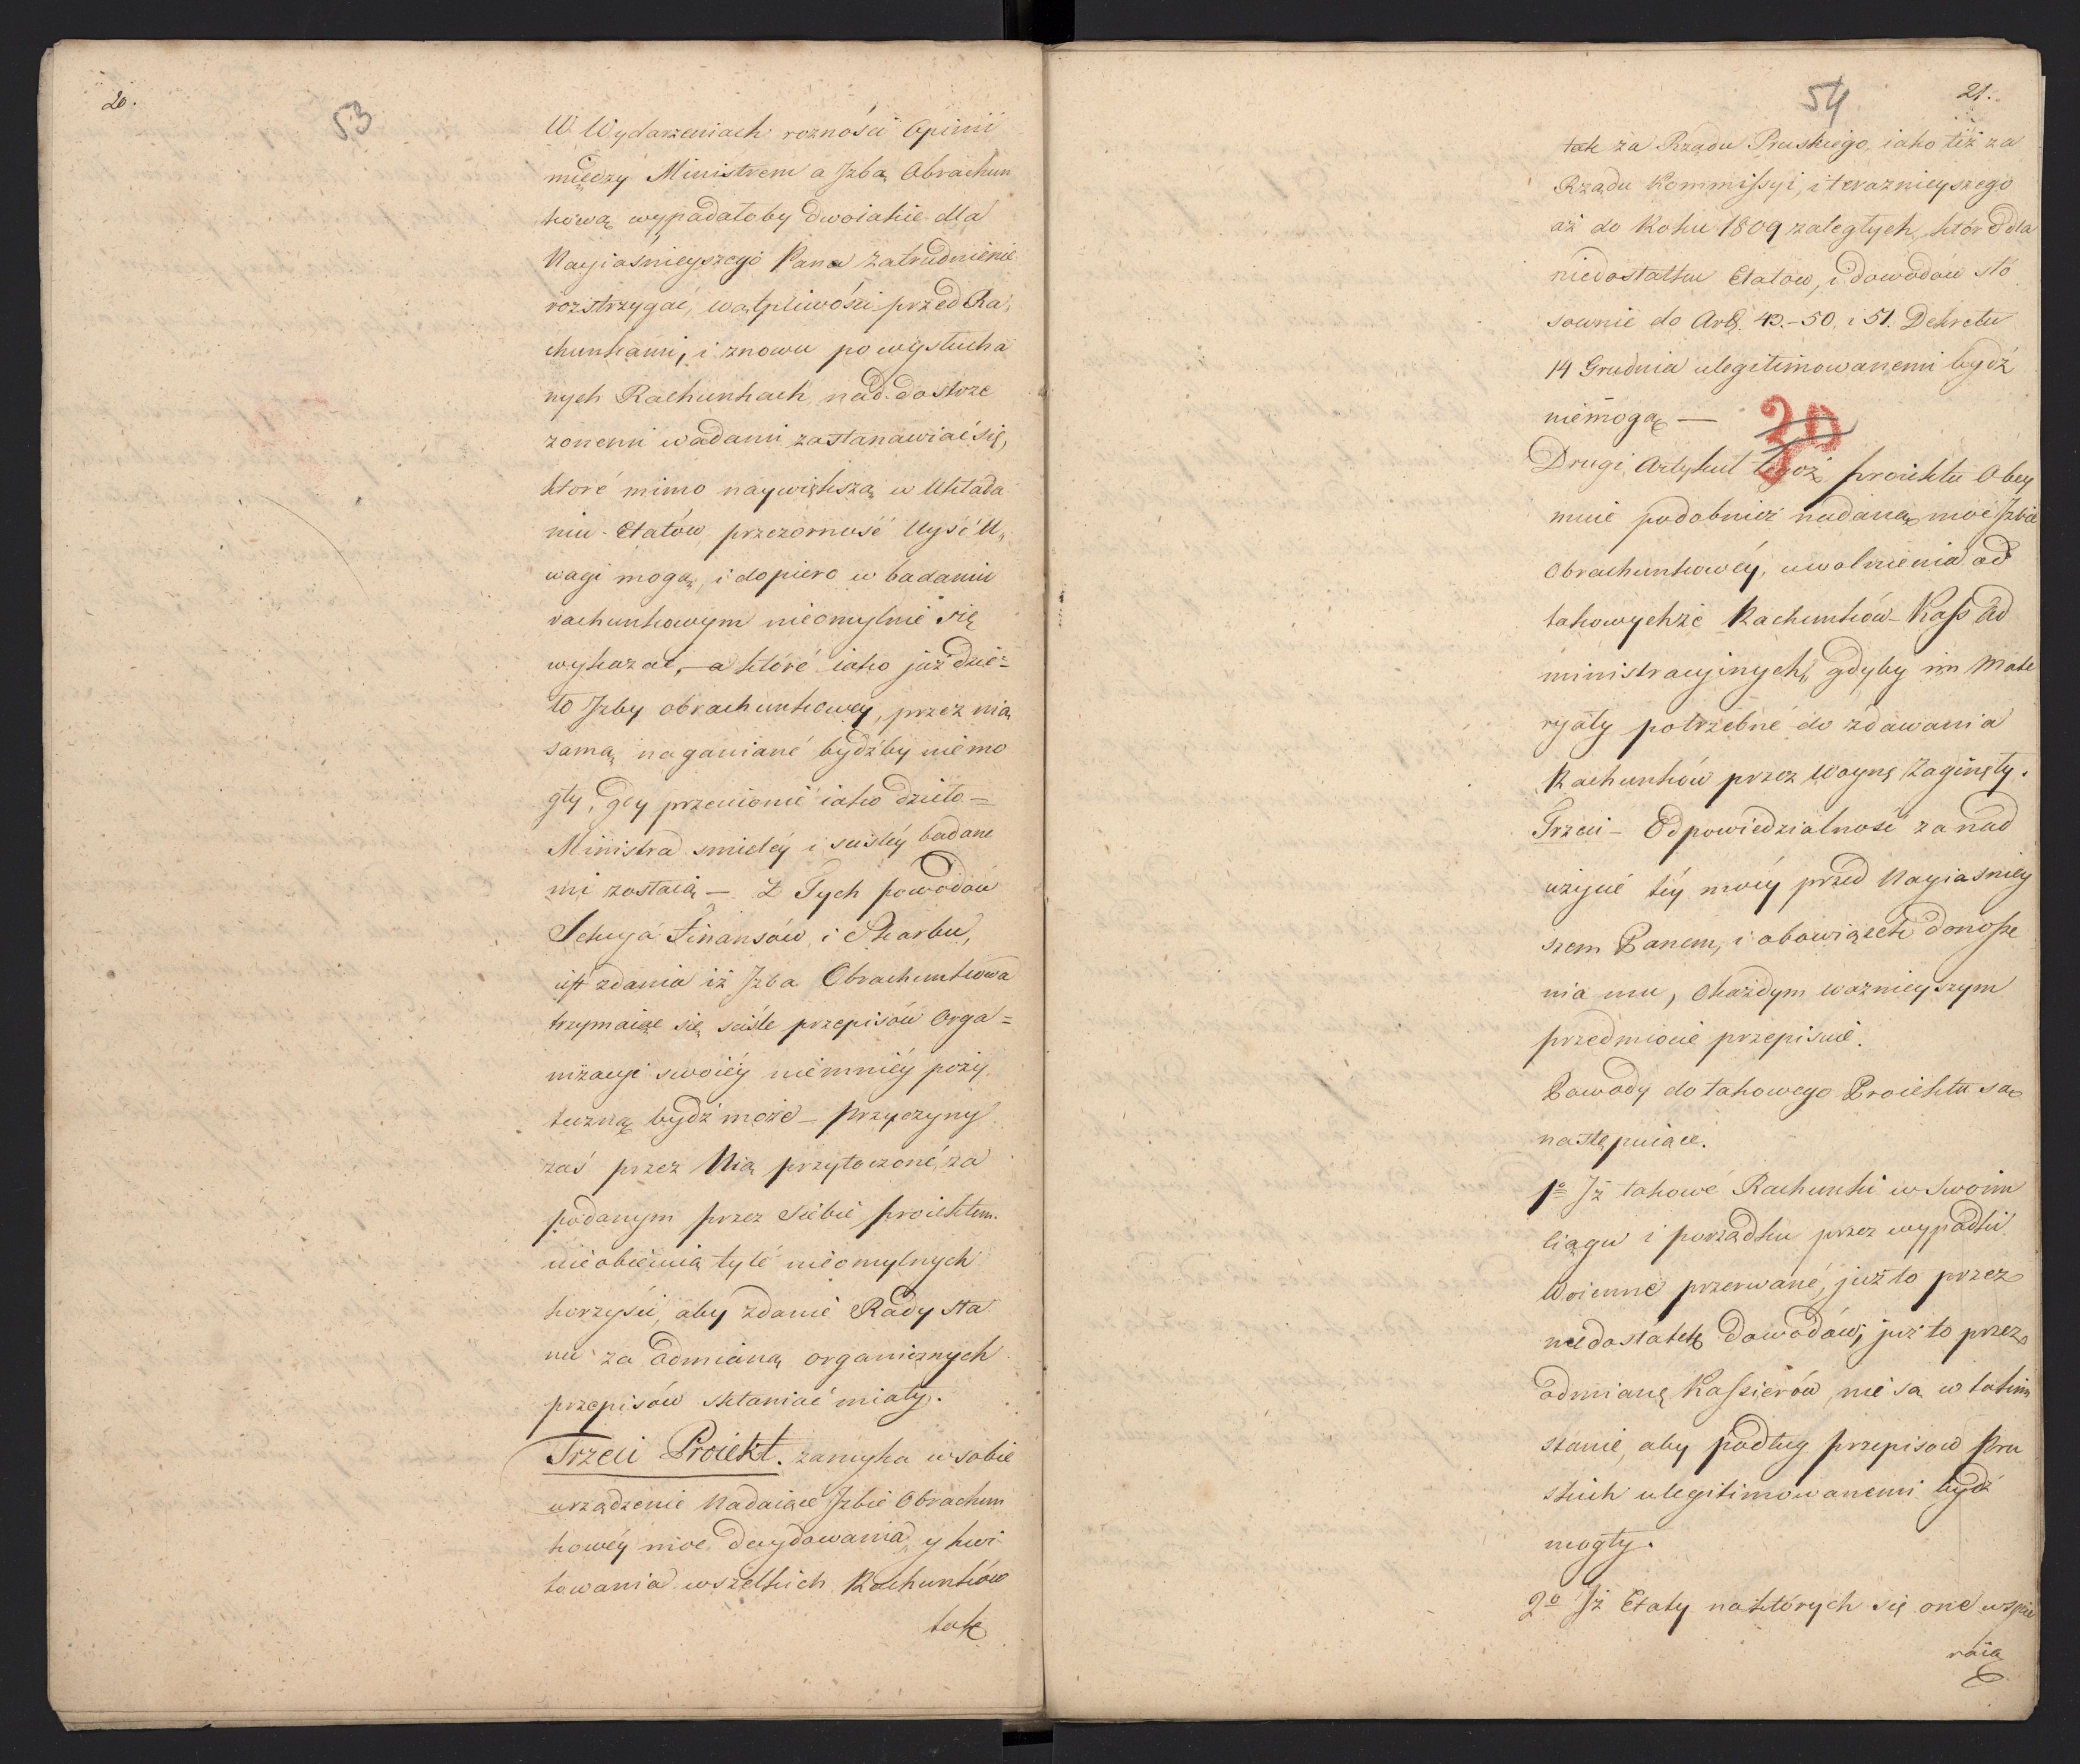 20.
53
W Wydarzeniach roznośći Opinii
między Ministrem a Jzbą Obrachun
kową wypadałoby dwoiakie dla
Nayiaśnieyszego Pana zatrudnienie
rozstrzygać, wątpliwości przed Ra,
chunkami, i znowu po wysłucha
nych Rachunkach nad dostrze
zonemi wadami zastanawiać się,
ktore mimo naywiększą w Układa
niu Etatów przezorność Uyść U,,
wagi mogą, i dopiero w badaniu
rachunkowym nieomylnie się
wykazać, – a które iako już dzie=
ło Jzby obrachunkowey, przez nią
samą naganiane bydźby niemo
gły, gdy przeciwnie iako dzieło =
Ministra smieléy i ściśléy badane
mi zostaią – Z Tych powodów
Sekcya Finansów i Skarbu,
iest zdania iż Jzba Obrachunkowa
trzymaiąc się ściśle przepisów Orga=
nizacyi swoiéy niemniéy poży
teczną bydź może – Przyczyny
zaś przez Nią przytoczoné, za
podanym przez siebie proiektem
nieobiecuią tyle nieomylnych
korzyści, aby zdanie Rady Sta
nu za odmianą organicznych
przepisów skłaniać miały.
Trzeci Proiekt. zamyka w sobie
urządzenie Nadaiące Jzbie Obrachun
kowéy moc decydowania y kwi
towania wszelkich Rachunków
tak
54
21.
tak za Rządu Pruskiego, iako też za
Rządu Kommissyi, i teraznieyszego
aż do Roku 1809 zaległych, które dla
niedostatku Etatow, i dowodów sto
sownie do Art. 49.–50. i 51. Dekretu
14 Grudnia ulegitimowanemi bydź
niemogą —
30
Drugi Artykuł tegoż proiektu Obey
muie podobnież nadaną moc Jzbie
Obrachunkowéy, uwolnienia od
takowychże Rachunków Kass Ad
ministracyinych, gdyby im Mate
ryały potrzebne do zdawania
Rachunków przez Woynę Zaginęły.
Trzeci – Odpowiedzialność za nad
użycie téy mocy przed Nayiasniey
szem Panem, i obowiązek donosze
nia mu, o każdym ważnieyszym
przedmiocie przepisuie.
Powody do takowego Proiektu są
następuiące.
1º Jż takowé Rachunki w Swoim
ciągu i porządku przez wypadki
Woienne przerwané, już to przez
niedostatek dowodów, już to przez
odmianę Kassierów, nie są w takim
stanie, aby podług przepisow Pru
skich ulegitimowanemi bydź
mogły.
2º Jż Etaty na których się one wspie
raią